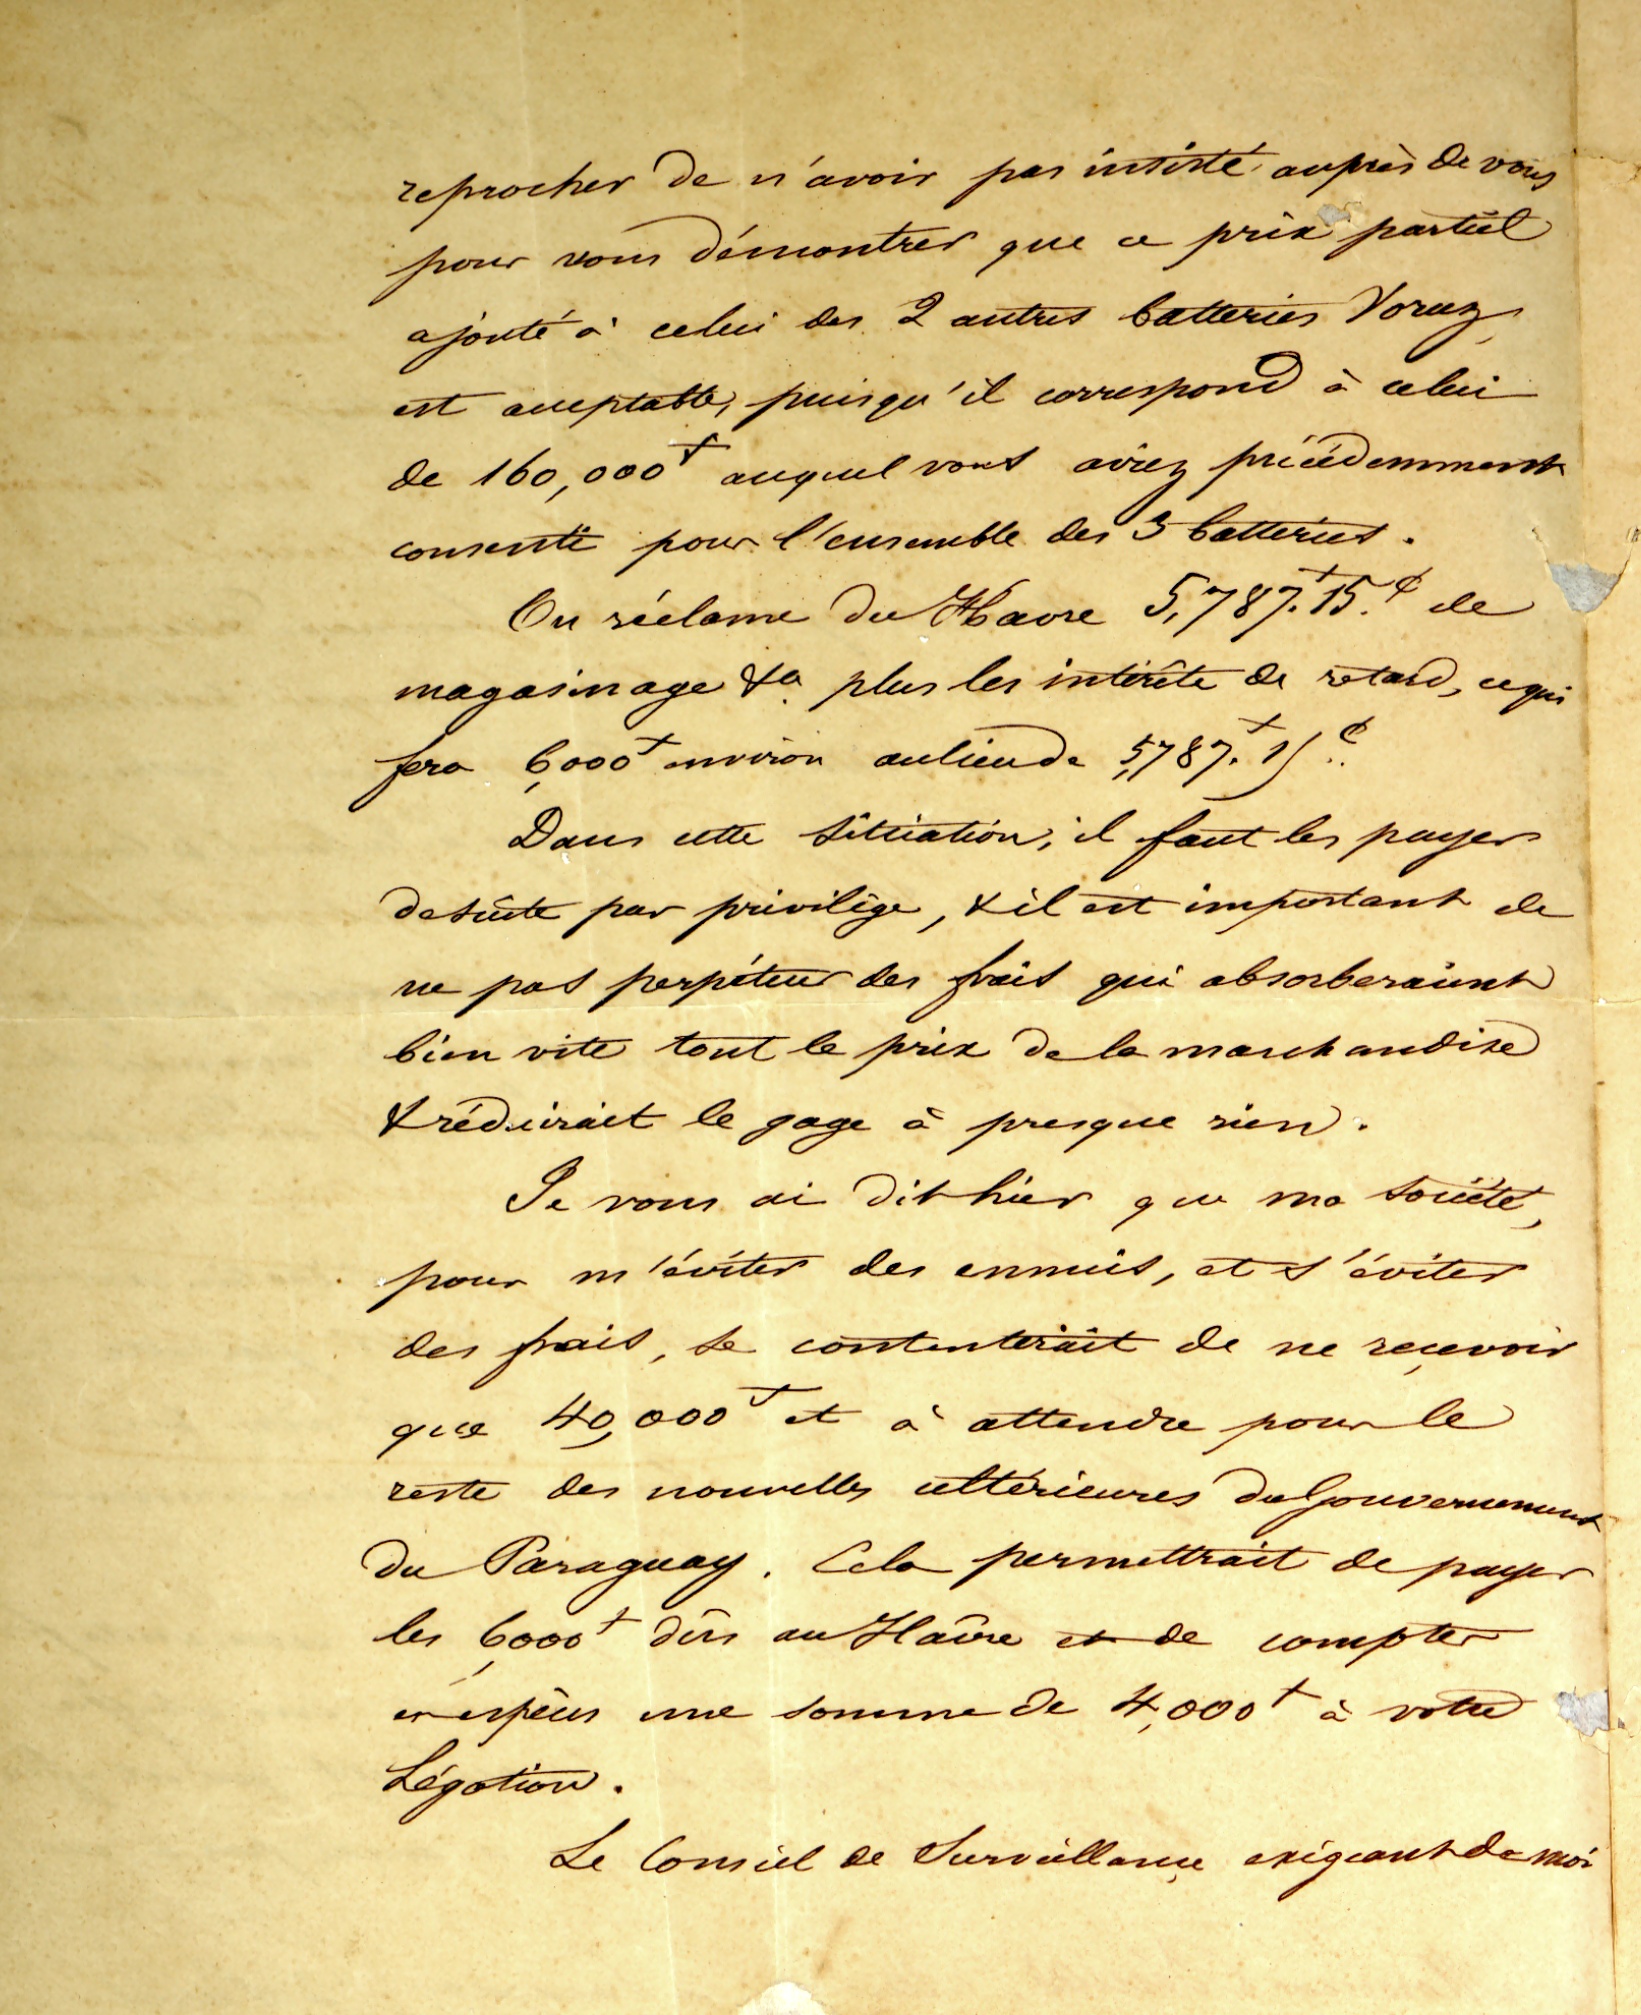 reprocher de n'avoir pas insisté auprès de vous
pour vous démontrer que ce prix partiel
ajouté à celui des 2 autres batteries Voruz,
est acceptable, puisqu'il correspond à celui
de 160,000 f auquel vous aviez précédemment
consenti pour l'ensemble des 3 batteries.
On réclame du Havre 5,787.f 15.c de
magasinage &a. plus les intérêts de retard, ce qui
fera 6,000 f environ au lieu de 5,787.f 15 c.
Dans cette situation, il faut les payer
de suite par privilège, & il est important de
ne pas perpétuer des frais qui absorberaient
bien vite tout le prix de la marchandise
& réduirait le gage à presque rien.
Je vous ai dit hier que ma société,
pour m'éviter des ennuis, et s'éviter
des frais, se contenterait de ne reçevoir
que 40,000 f et à attendre pour le
reste des nouvelles ultérieures du Gouvernement
du Paraguay. Cela permettrait de payer
les 6,000 f dûs au Hâvre et de compter
en espèces une somme de 4,000 f à votre
Légation.
Le Conseil de Surveillançe exigeant de moi